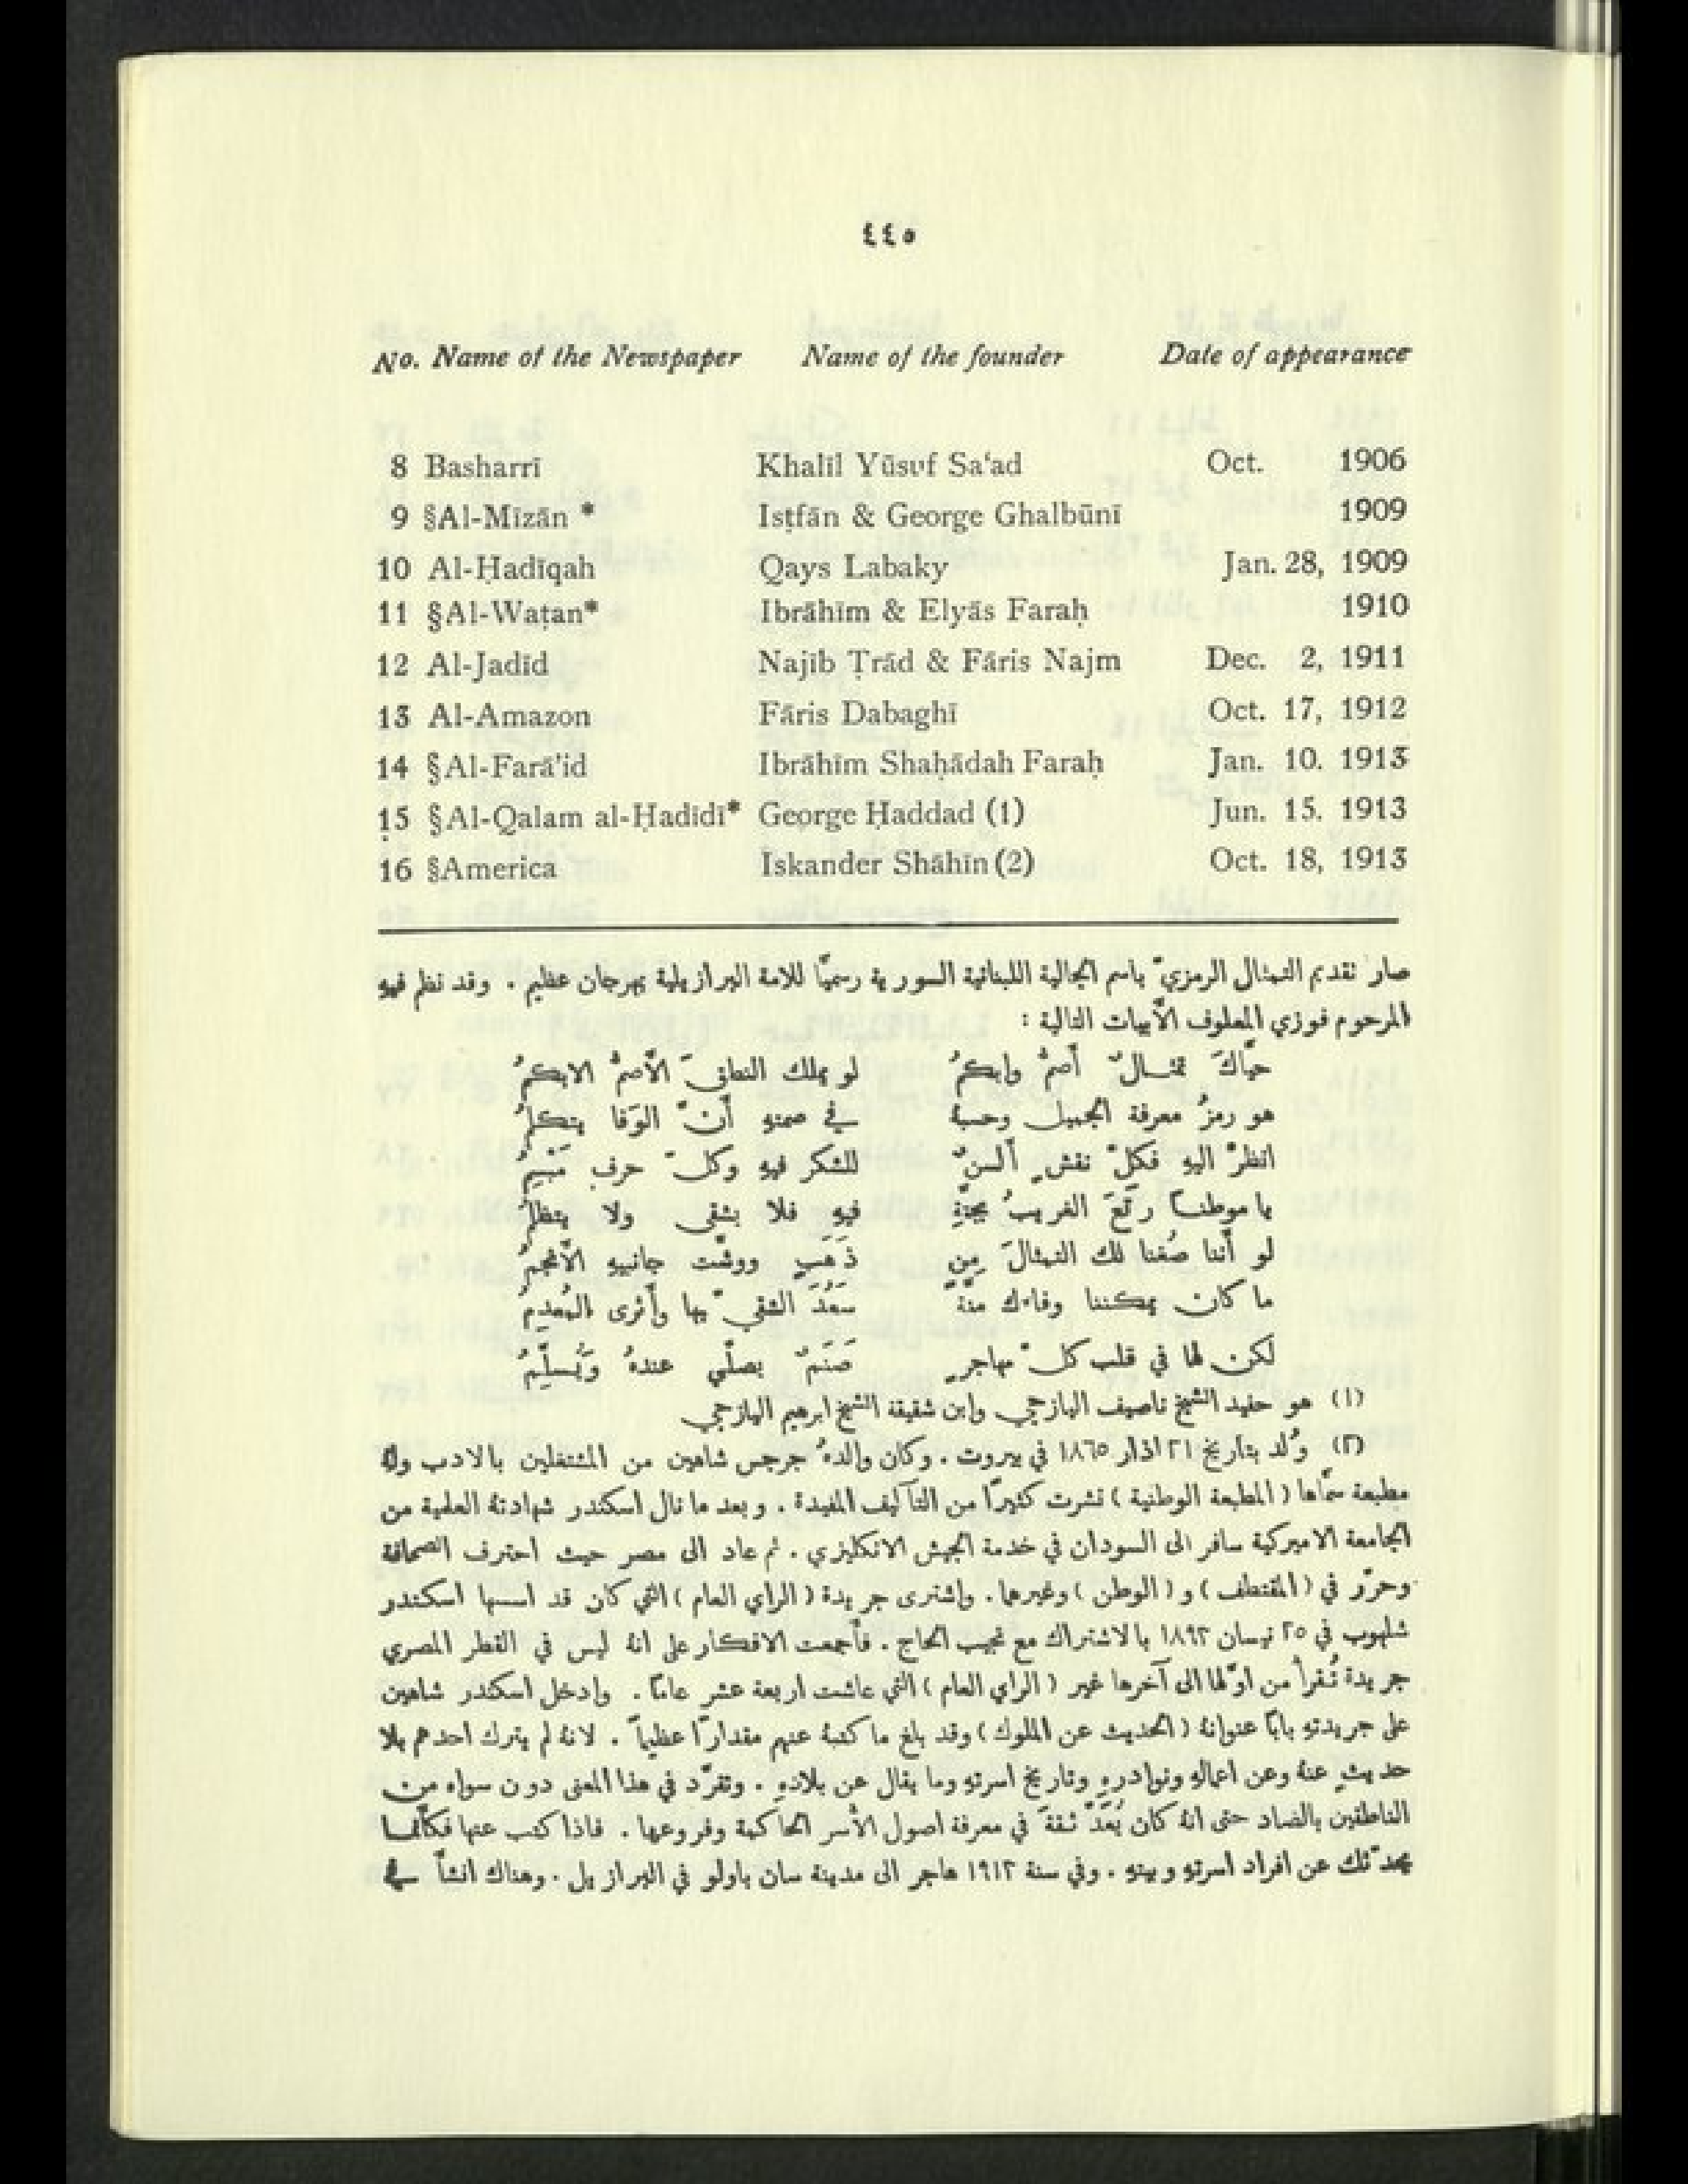 ٤٤٥
No. Name of the Newspaper Name of the founder Date of appearance
8 Basharrī Khalīl Yūsuf Sa‘ad Oct. 1906
9 §Al-Mīzān * Isṭfān & George Ghalbūnī 1909
10 Al-Ḥadīqah Qays Labaky Jan. 28, 1909
11 §Al-Waṭan* Ibrāhīm & Elyās Faraḥ 1910
12 Al-Jadīd Najīb Ṭrād & Fāris Najm Dec. 2, 1911
13 Al-Amazon Fāris Dabaghī Oct. 17, 1912
14 §Al-Farā'id Ibrāhīm Shaḥādah Faraḥ Jan. 10. 1913
15 §Al-Qalam al-Ḥadīdī* George Ḥaddad (1) Jun. 15. 1913
16 §America Iskander Shāhīn (2) Oct. 18, 1913
صار تقديم التمثال الرمزيّ باسم الجالية اللبنانية السورية رسميًّا للامة البرازيلية بمهرجان عظيم . وقد نظم فيهِ
المرحوم فوزي المعلوف الأبيات التالية :
حيَّاكَ تمثــالٌ أصمُّ وابكمُ لو يملك النطقَ الأصمُّ الابكمُ
هو رمزُ معرفة الجميل وحسبهُ في صمتهِ أنَّ الوَفا يتكلمُ
انظرْ اليهِ فكلّ نقشٍ ألسنٌ للشكر فيهِ وكلّ حرفٍ مَبْسِمُ
يا موطنــًا رتَعَ الغريبُ بجنَّةٍ فيهِ فلا يشقى ولا يتظلمُ
لو أننا صُغنا لك التمثالَ مِن ذَهَبٍ ووشَّت جانبيهِ الأنجمُ
ما كان يمكننا وفاءك منَّةً سَعُدَ الشقيّ بها وأثرى المُعدِمُ
لكن لها في قلب كلّ مهاجرٍ صَنَمٌ يصلّي عندهُ ويُسلِّمُ
(١) هو حفيد الشيخ ناصيف اليازجي وابن شقيقة الشيخ ابرهيم اليازجي
(٢) وُلد بتاريخ ٢١ اذار ١٨٦٥ في بيروت . وكان والدهُ جرجس شاهين من المشتغلين بالادب ولهُ
مطبعة سمَّاها ( المطبعة الوطنية ) نشرت كثيرًا من التآليف المفيدة . وبعد ما نال اسكندر شهادتهُ العلمية من
الجامعة الاميركية سافر الى السودان في خدمة الجيش الانكليزي . ثم عاد الى مصر حيث احترف الصحافة
وحرّر في ( المقتطف ) و ( الوطن ) وغيرهما . واشترى جريدة ( الراي العام ) التي كان قد اسسها اسكندر
شلهوب في ٢٥ نيسان ١٨٩٣ بالاشتراك مع نجيب الحاج . فأجمعت الافكار على انهُ ليس في القطر المصري
جريدة تُقرأ من اوّلها الى آخرها غير ( الراي العام ) التي عاشت اربعة عشر عامًا . وادخل اسكندر شاهين
على جريدتهِ بابًا عنوانهُ ( الحديث عن الملوك ) وقد بلغ ما كتبهُ عنهم مقدارًا عظيمًا . لانهُ لم يترك احدهم بلا
حديثٍ عنهُ وعن اعمالهِ ونوادرهِ وتاريخ اسرتهِ وما يقال عن بلادهِ . وتفرّد في هذا المعنى دون سواه من
الناطقين بالضاد حتى انهُ كان يُعَدّ ثقةً في معرفة اصول الأسر الحاكمة وفروعها . فاذا كتب عنها فكأنمــا
يحدّثك عن افراد اسرتهِ وبيتهِ . وفي سنة ١٩١٣ هاجر الى مدينة سان باولو في البرازيل . وهناك انشأ في